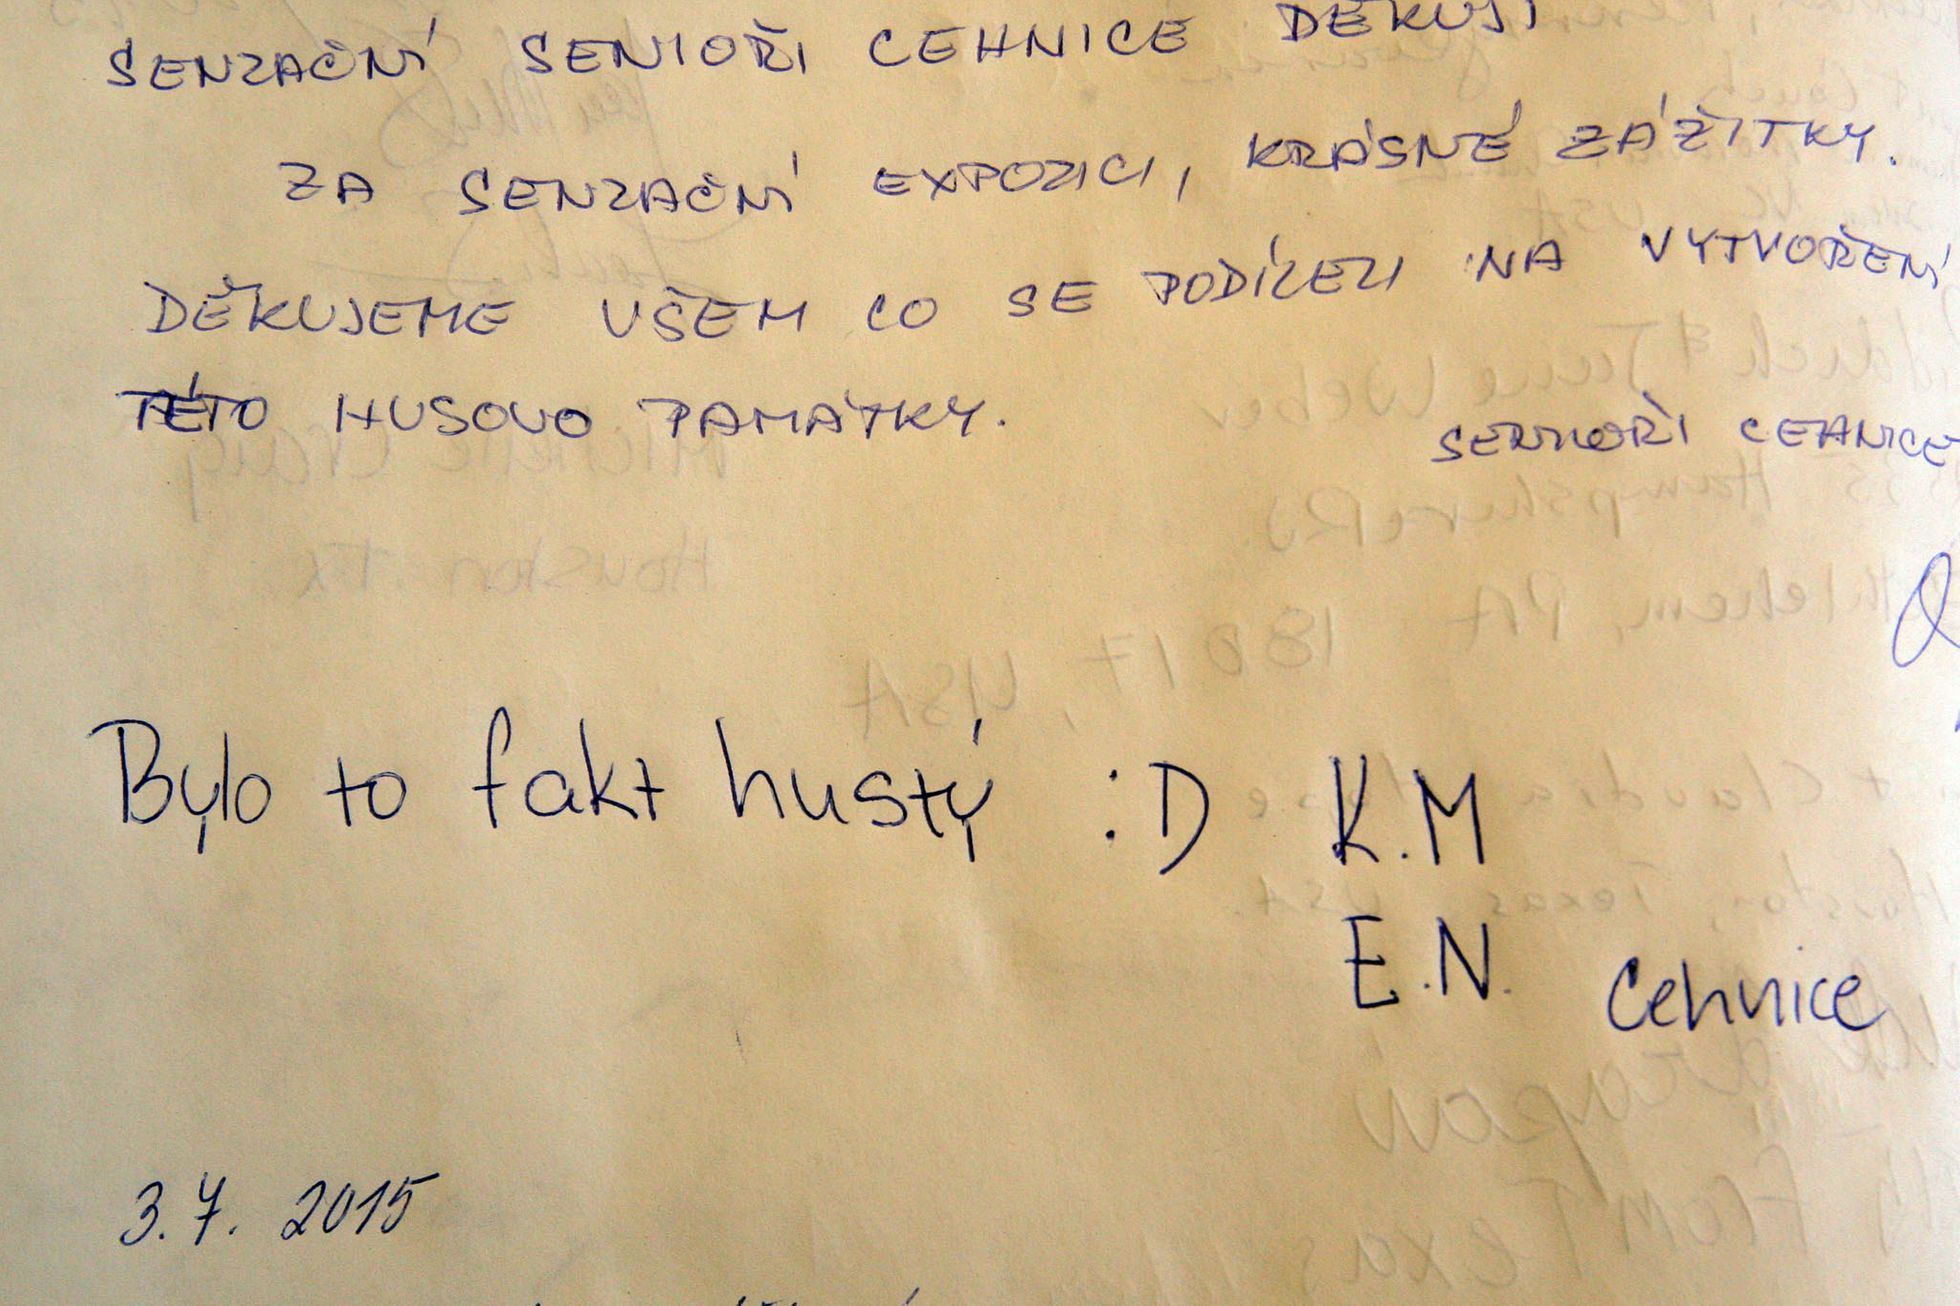 SENZAČNÍ SENIOŘI CEHNICE DĚKUJÍ
ZA SENZAČNÍ EXPOZICI, KRÁSNÉ ZÁŽITKY.
DĚKUJEME VŠEM CO SE PODÍLELI NA VYTVOŘENÍ
TÉTO HUSOVO PAMÁTKY.
SENIOŘI CEHNICE
Bylo to fakt hustý :D K.M
E.N. Cehnice
3.7. 2015